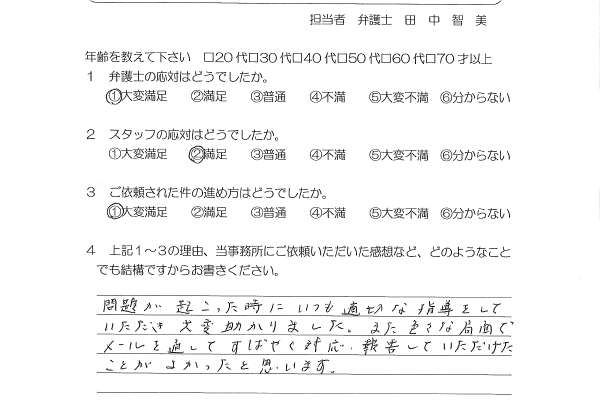 担当者 弁護士 田 中 智 美
年齢を教えて下さい □20代□30代□40代□50代□60代□70才以上
1 弁護士の応対はどうでしたか。
①大変満足 ②満足 ③普通 ④不満 ⑤大変不満 ⑥分からない
2 スタッフの応対はどうでしたか。
①大変満足 ②満足 ③普通 ④不満 ⑤大変不満 ⑥分からない
3 ご依頼された件の進め方はどうでしたか。
①大変満足 ②満足 ③普通 ④不満 ⑤大変不満 ⑥分からない
4 上記1～3の理由、当事務所にご依頼いただいた感想など、どのようなこと
でも結構ですからお書きください。
問題が起こった時にいつも適切な指導をして
いただき大変助かりました。また色々な局面で
メールを通してすばやく対応、報告していただけた
ことがよかったと思います。